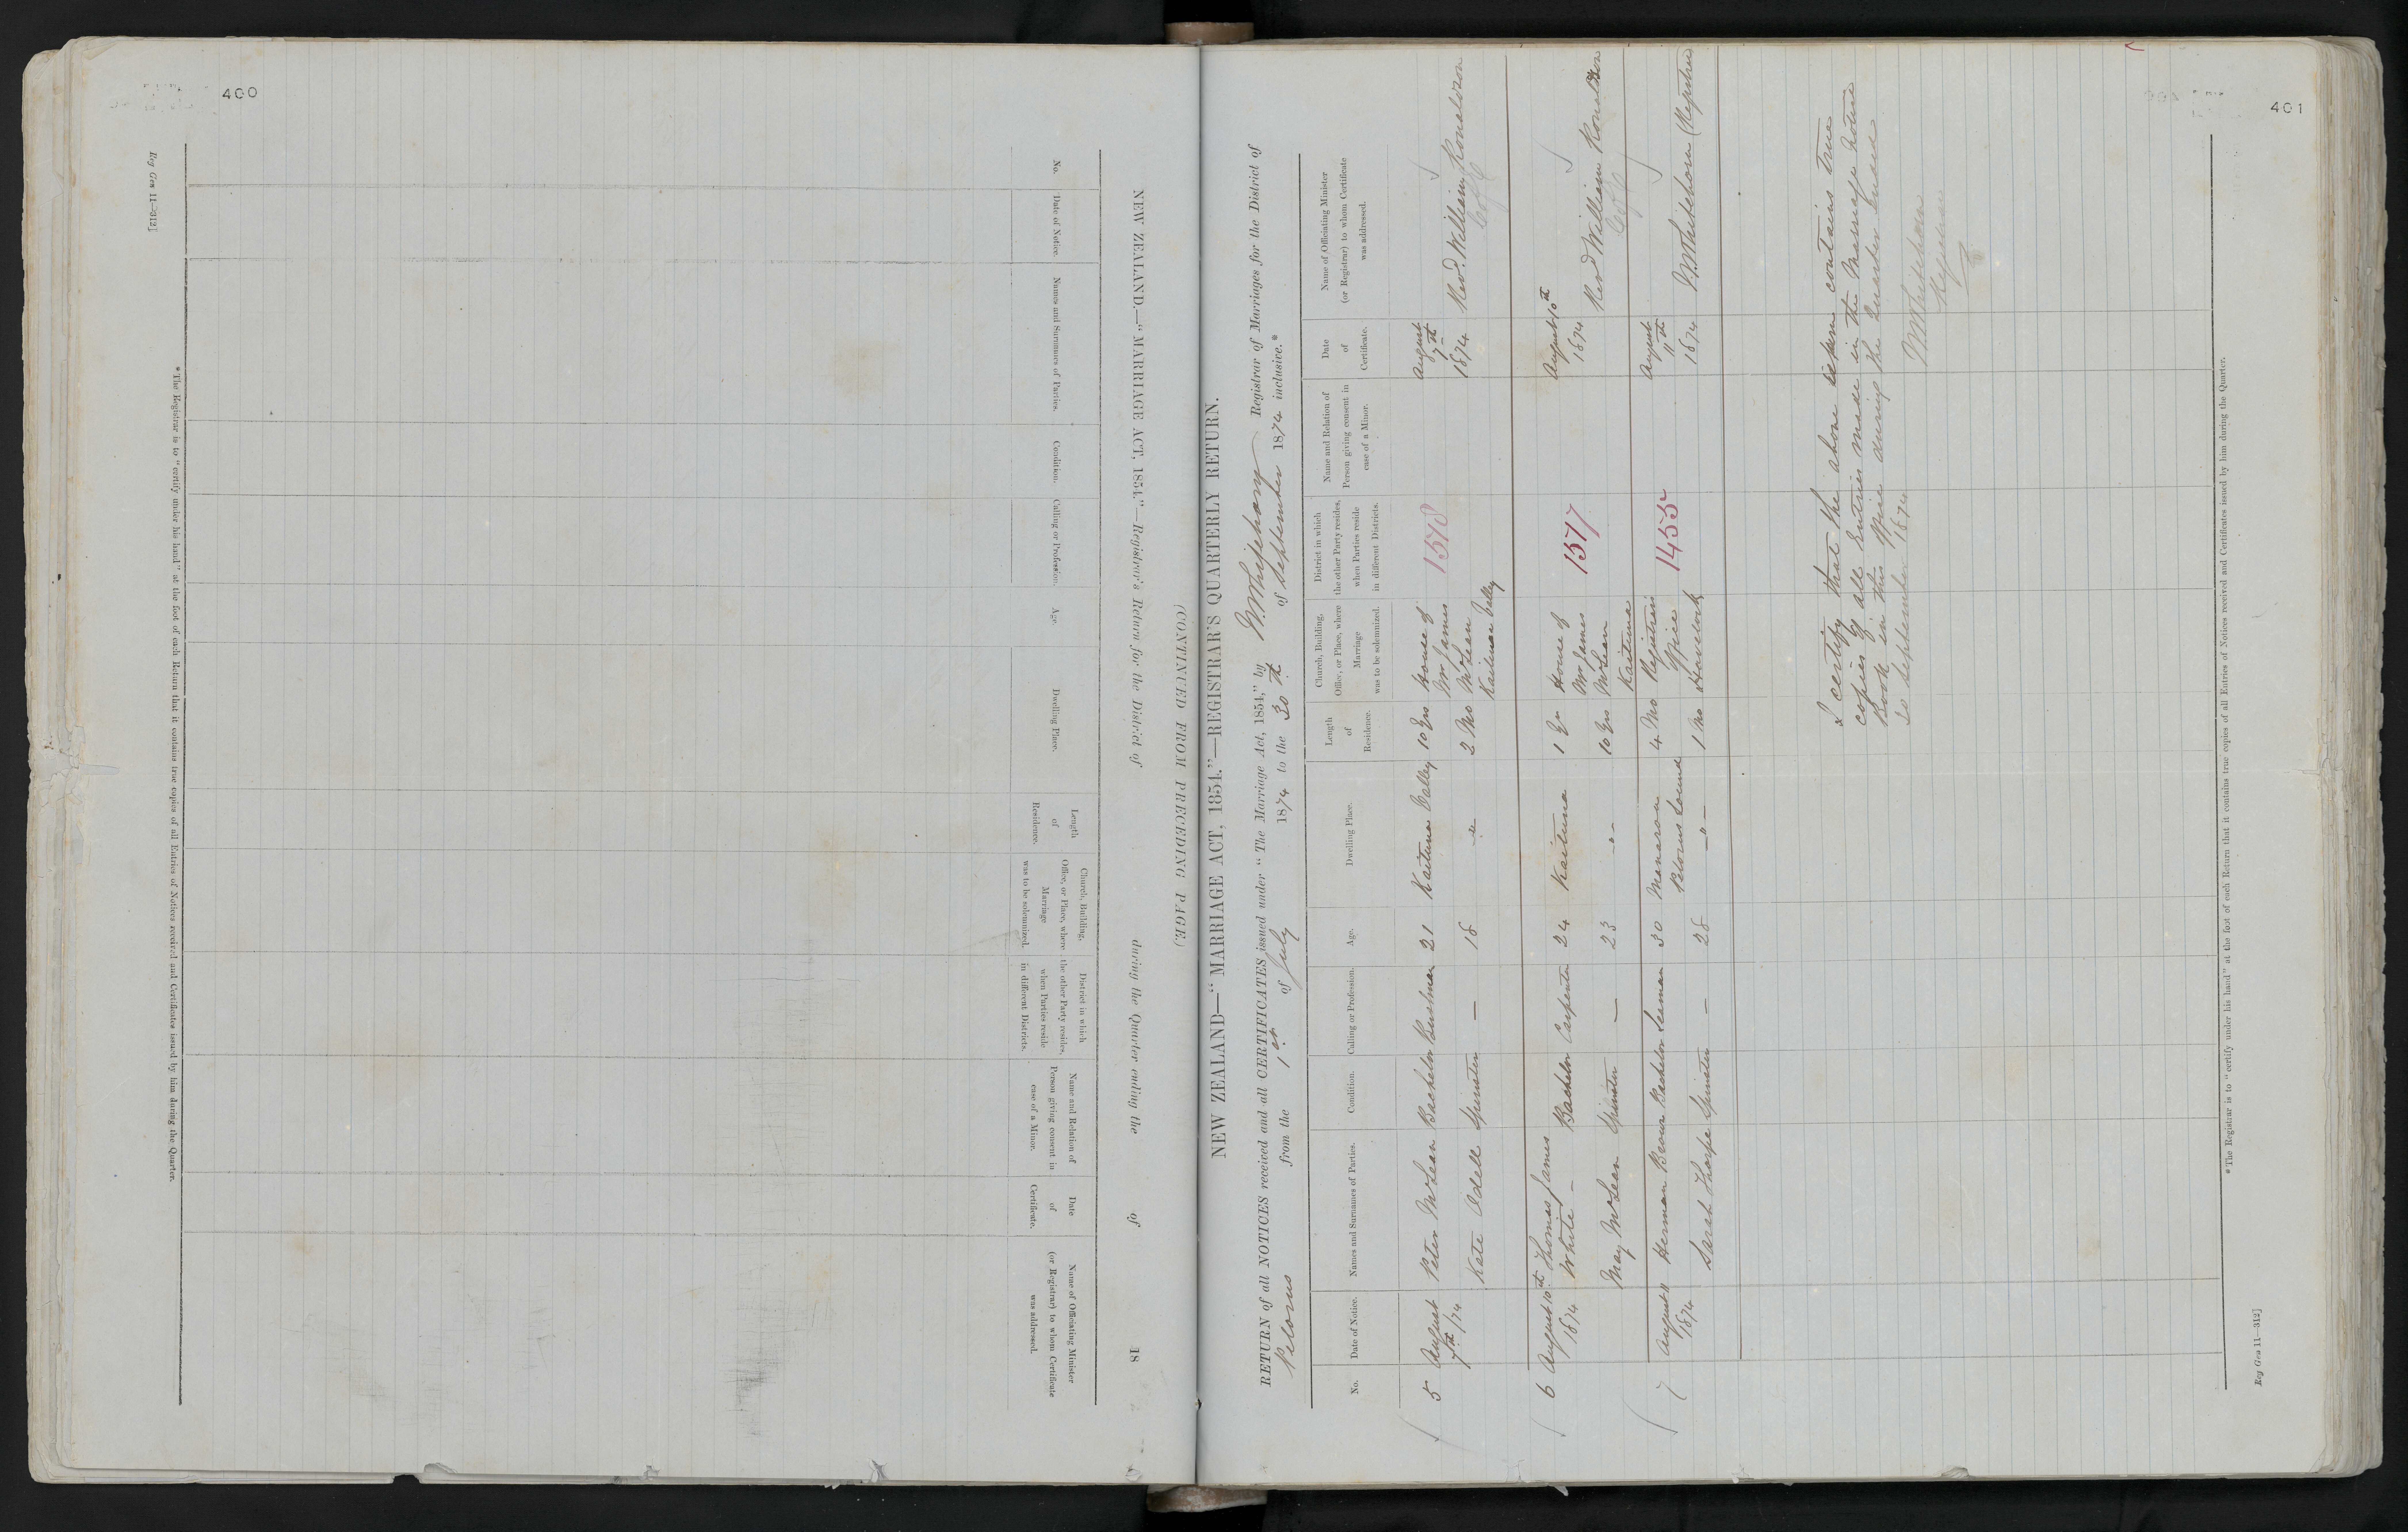 400
Reg Gen 11—312]
NEW ZEALAND.—"MARRIAGE ACT, 1854."—Registrar's Return for the District of during the Quarter ending the of 18
(CONTINUED FROM PRECEDING PAGE.)
No.
Date of Notice.
Names and Surnames of Parties.
Condition.
Calling or Profession.
Age.
Dwelling Place.
Length
of
Residence.
Church, Building,
Office, or Place, where
Marriage
was to be solemnized.
District in which
the other Party resides,
when Parties reside
in different Districts.
Name and Relation of
Person giving consent in
case of a Minor.
Date
of
Certificate.
Name of Officiating Minister
(or Registrar) to whom Certificate
was addressed.
*The Registrar is to "certify under his hand" at the foot of each Return that it contains true copies of all Entries of Notices received and Certificates issued by him during the Quarter.
401
NEW ZEALAND—"MARRIAGE ACT, 1854."—REGISTRAR'S QUARTERLY RETURN.
RETURN of all NOTICES received and all CERTIFICATES issued under "The Marriage Act, 1854," by W. Whitehorn Registrar of Marriages for the District of
Pelorus from the 1st of July 1874 to the 30th of September 1874 inclusive.*
No.
Date of Notice.
Names and Surnames of Parties.
Condition.
Calling or Profession.
Age.
Dwelling Place.
Length
of
Residence.
Church, Building,
Office, or Place, where
Marriage
was to be solemnized.
District in which
the other Party resides,
when Parties reside
in different Districts.
Name and Relation of
Person giving consent in
case of a Minor.
Date
of
Certificate.
Name of Officiating Minister
(or Registrar) to whom Certificate
was addressed.
5 August Peter McLean Bachelor Bushman 21 Kaituna Valley 10 Yrs House of 1578 August
7th /74 Mr James 7th
Kate Odell Spinster — 18 -"- 2 Mo McLean 1874 Revd. William Ronaldson
Kaituna Valley C of E
6 August 10th Thomas James House of August 10th
1874 White — Bachelor Carpenter 24 Kaituna 1 Yr Mr James 1577 1874
May McLean Spinster — 23 -"- 10 Yrs McLean Revd William Ronaldson
Kaituna C of E
7 August 11 Herman Bachelor Seaman 30 Manaroa 4 Mo Registrars 1455 August
1874 Pelorus Sound Office 11th
Sarah Thorpe Spinster — 28 -"- 1 Mo Havelock 1874 W. Whitehorn (Registrar
I certify that the above return contains true
copies of all Entries made in the Marriage Notice
Book in this Office during the Quarter ended
30 September 1874
W Whitehorn
Registrar
*The Registrar is to "certify under his hand" at the foot of each Return that it contains true copies of all Entries of Notices received and Certificates issued by him during the Quarter.
Reg Gen 11—312]